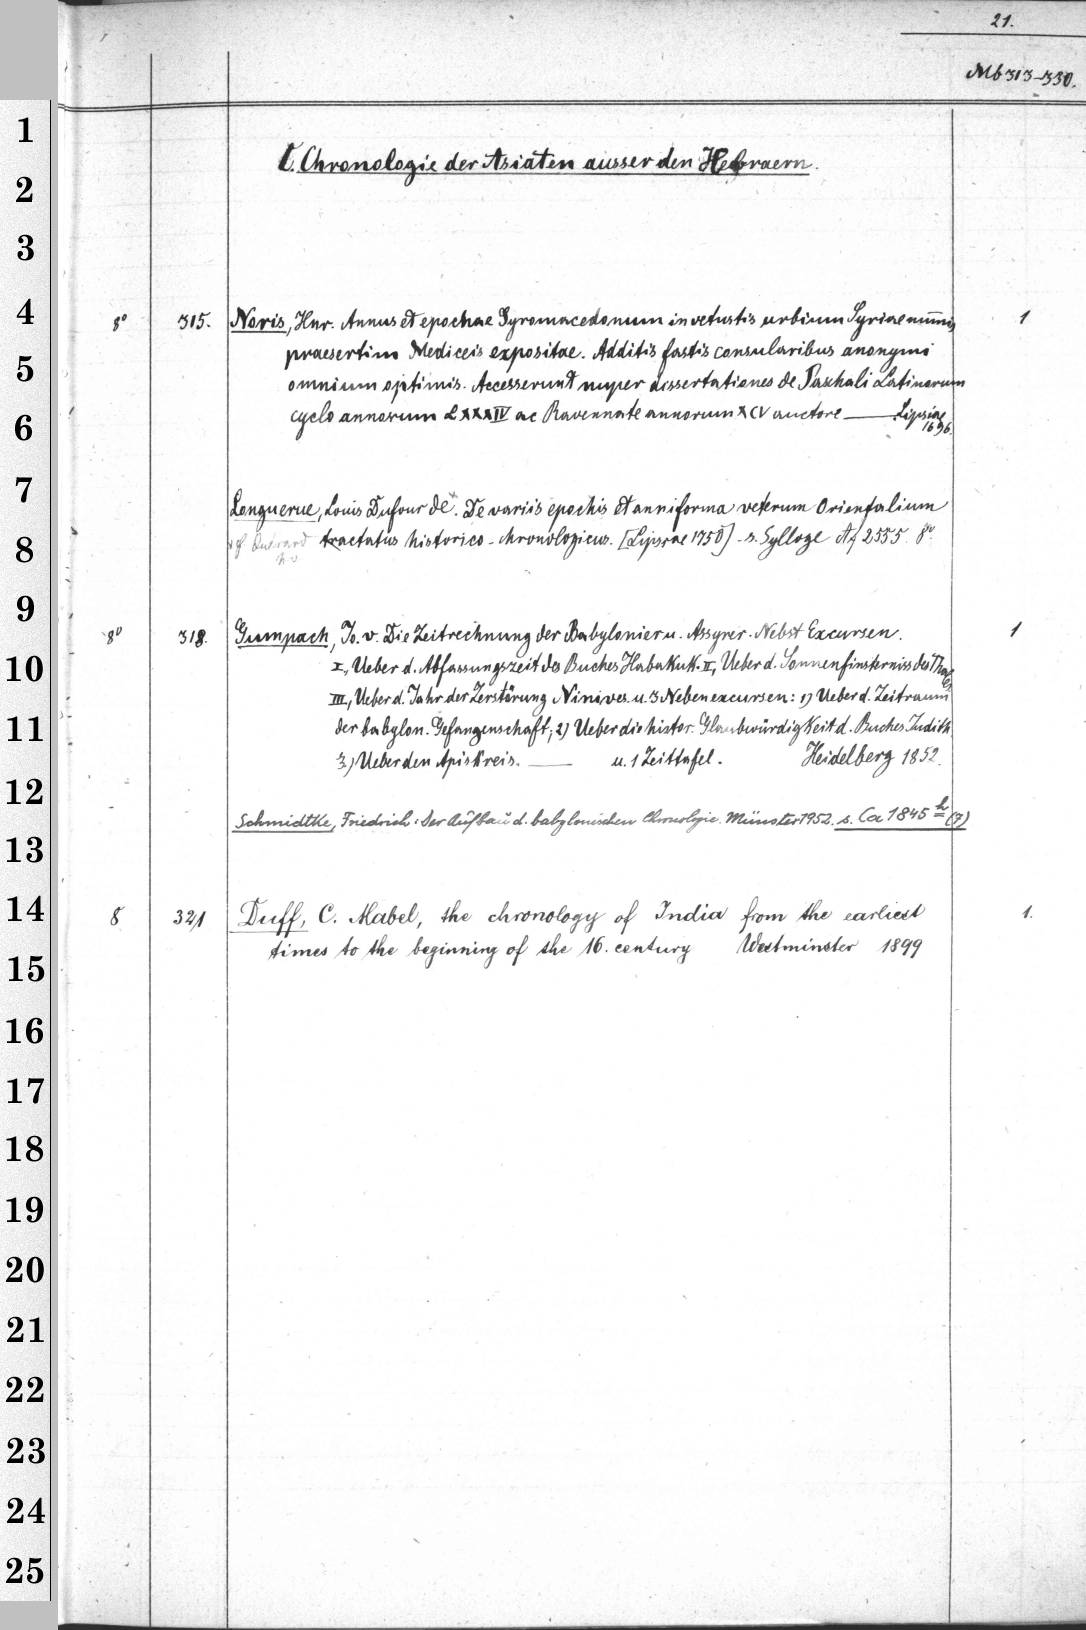 21.
Mb 313-330.
C. Chronologie der Asiaten ausser den Hebraern.
8° 315. Noris, Hnr. Annus et epochae Syromacedonum in vetustis urbium Syriae nummis 1
praesertim Mediceis expositae. Additis fastis consularibus anonymi
omnium optimis. Accesserunt nuper dissertationes de Paschali Latinorum
cyclo annorum LXXXIV ac Ravennate annorum XCV auctore — Lipsiae
1696.
Longuerue, Louis Dufour de x. De variis epochis et anni forma veterum Orientalium
x cf Quérard tractatus historico-chronologicus. [Lipsiae 1750] - s. Sylloge Af 2555. 8°
8° 318. Gumpach, Jo. v. Die Zeitrechnung der Babylonier u. Assyrer. Nebst Excursen. 1
I, Ueber d. Abfassungszeit des Buches Habakuk. II, Ueber d. Sonnenfinsterniss des Thales
III, Ueber d. Jahr der Zerstörung Ninives. u. 3 Nebenexcursen: 1) Ueber d. Zeitraum
der babylon. Gefangenschaft; 2) Ueber die histor. Glaubwürdigkeit d. Buches Judith
3.) Ueber den Apiskreis. — u. 1 Zeittafel. Heidelberg 1852.
Schmidtke, Friedrich: Der Aufbau d. babylonischen Chronologie. Münster 1952. s. Ca 1845 h (7)
8 321 Duff, C. Mabel, the chronology of India from the earliest 1.
times to the beginning of the 16. century Westminster 1899
1
2
3
4
5
6
7
8
9
10
11
12
13
14
15
16
17
18
19
20
21
22
23
24
25